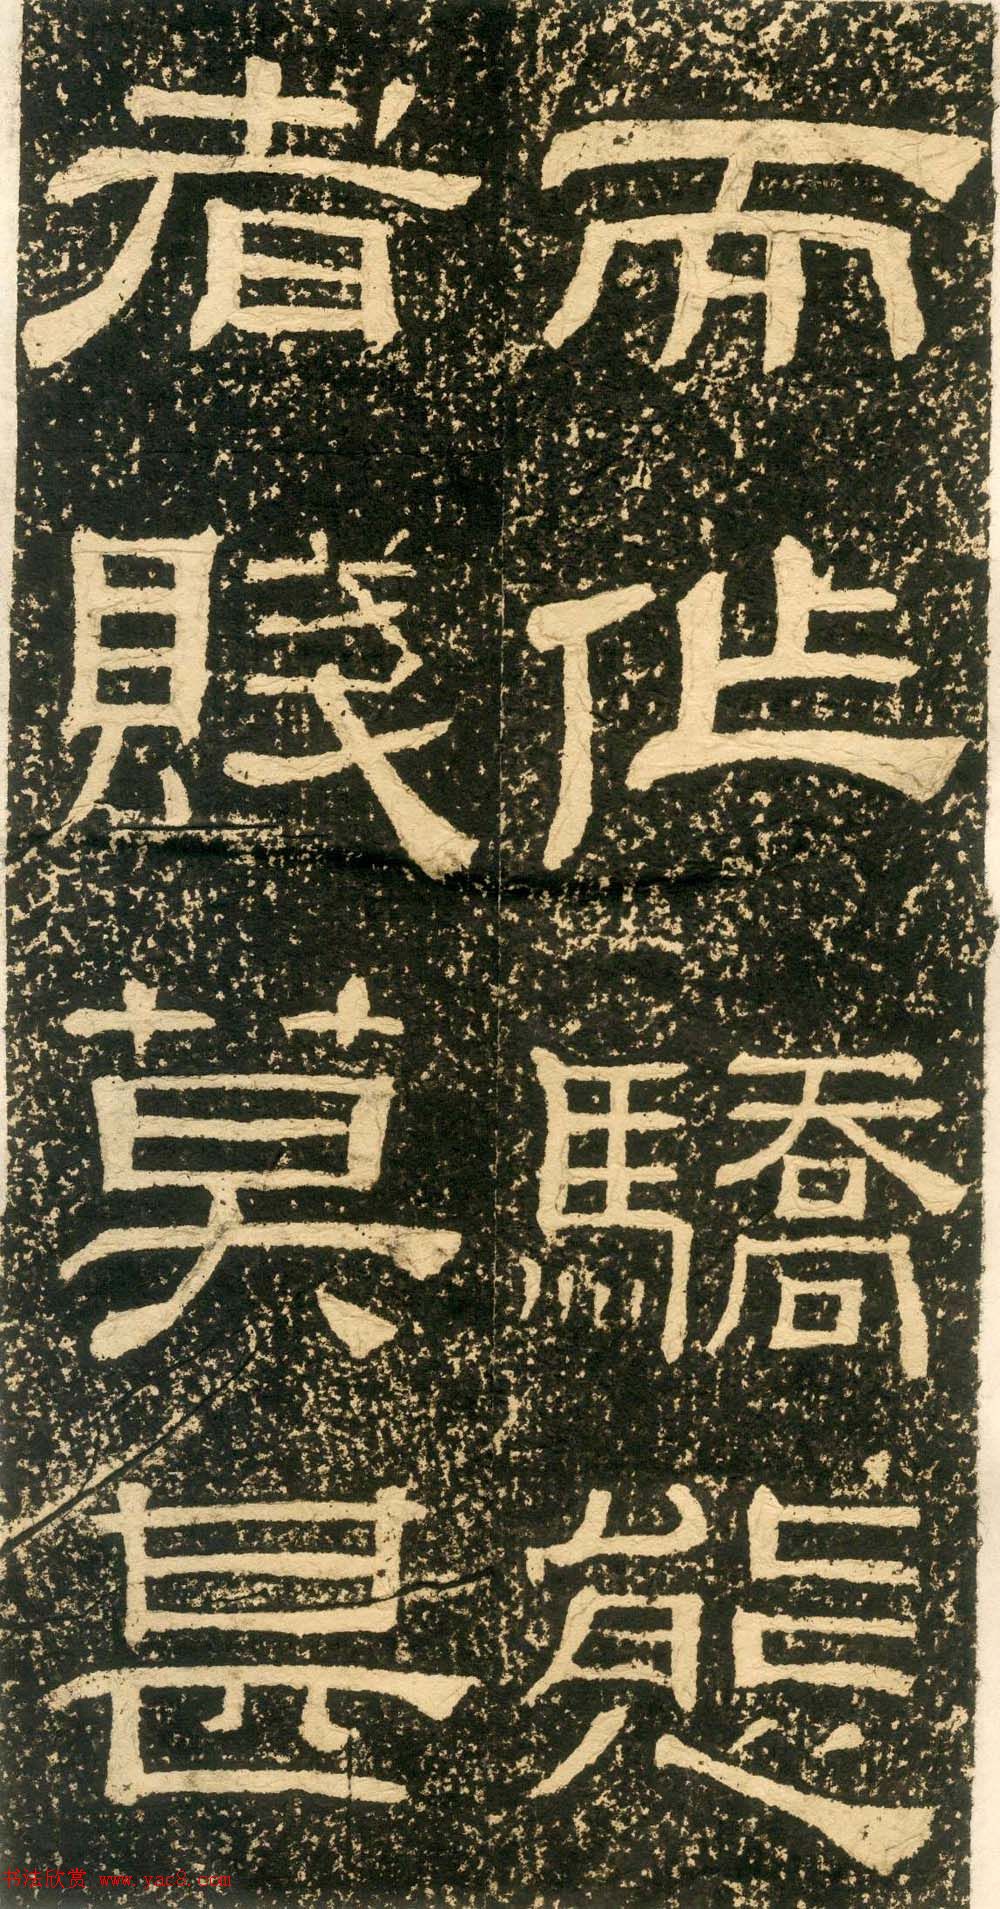 而作驕態
者賤莫甚
书法欣赏 www.yac8.com